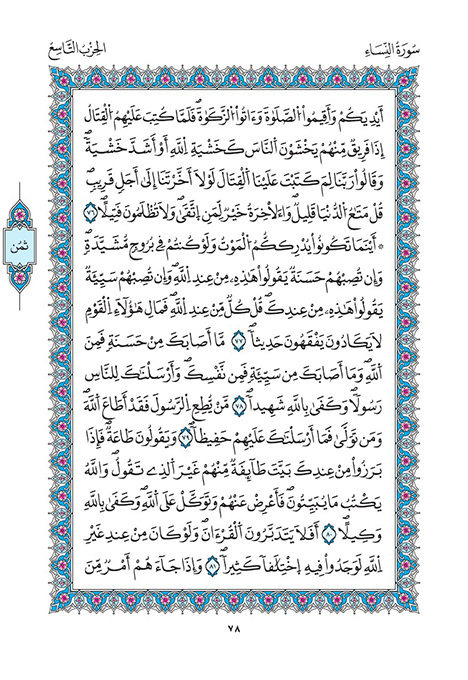 سُورَةُ النِّسَاءِ
الحِزْبُ التَّاسِعُ
أَيْدِيَكُمْ وَأَقِيمُواْ الصَّلَوٰةَ وَءَاتُواْ الزَّكَوٰةَ فَلَمَّا كُتِبَ عَلَيْهِمُ الْقِتَالُ
إِذَا فَرِيقٌ مِّنْهُمْ يَخْشَوْنَ النَّاسَ كَخَشْيَةِ اللَّهِ أَوْ أَشَدَّ خَشْيَةً
وَقَالُواْ رَبَّنَا لِمَ كَتَبْتَ عَلَيْنَا الْقِتَالَ لَوْلَا أَخَّرْتَنَا إِلَىٰ أَجَلٍ قَرِيبٍ
قُلْ مَتَٰعُ الدُّنْيَا قَلِيلٌ وَالَاخِرَةُ خَيْرٌ لِّمَنِ اِتَّقَىٰ وَلَا تُظْلَمُونَ فَتِيلًا ٧٦
ثُمُن
* أَيْنَمَا تَكُونُواْ يُدْرِككُّمُ الْمَوْتُ وَلَوْ كُنتُمْ فِي بُرُوجٍ مُّشَيَّدَةٍ
وَإِن تُصِبْهُمْ حَسَنَةٌ يَقُولُواْ هَٰذِهِ مِنْ عِندِ اللَّهِ وَإِن تُصِبْهُمْ سَيِّئَةٌ
يَقُولُواْ هَٰذِهِ مِنْ عِندِكَ قُلْ كُلٌّ مِّنْ عِندِ اللَّهِ فَمَالِ هَٰؤُلَاءِ الْقَوْمِ
لَا يَكَادُونَ يَفْقَهُونَ حَدِيثًا ٧٧ مَّا أَصَابَكَ مِنْ حَسَنَةٍ فَمِنَ
اللَّهِ وَمَا أَصَابَكَ مِن سَيِّئَةٍ فَمِن نَّفْسِكَ وَأَرْسَلْنَٰكَ لِلنَّاسِ
رَسُولًا وَكَفَىٰ بِاللَّهِ شَهِيدًا ٧٨ مَّنْ يُّطِعِ الرَّسُولَ فَقَدْ أَطَاعَ اللَّهَ
وَمَن تَوَلَّىٰ فَمَا أَرْسَلْنَٰكَ عَلَيْهِمْ حَفِيظًا ٧٩ وَيَقُولُونَ طَاعَةٌ فَإِذَا
بَرَزُواْ مِنْ عِندِكَ بَيَّتَ طَائِفَةٌ مِّنْهُمْ غَيْرَ الَّذِي تَقُولُ وَاللَّهُ
يَكْتُبُ مَا يُبَيِّتُونَ فَأَعْرِضْ عَنْهُمْ وَتَوَكَّلْ عَلَى اللَّهِ وَكَفَىٰ بِاللَّهِ
وَكِيلًا ٨٠ أَفَلَا يَتَدَبَّرُونَ الْقُرْءَانَ وَلَوْ كَانَ مِنْ عِندِ غَيْرِ
اللَّهِ لَوَجَدُواْ فِيهِ اِخْتِلَٰفًا كَثِيرًا ٨١ وَإِذَا جَاءَهُمْ أَمْرٌ مِّنَ
٧٨